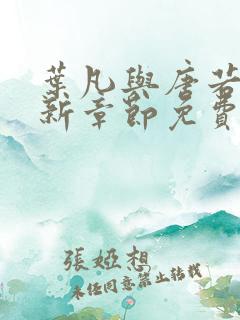 葉凡與唐若
新章節免費
張婭想
未经同意禁止转载